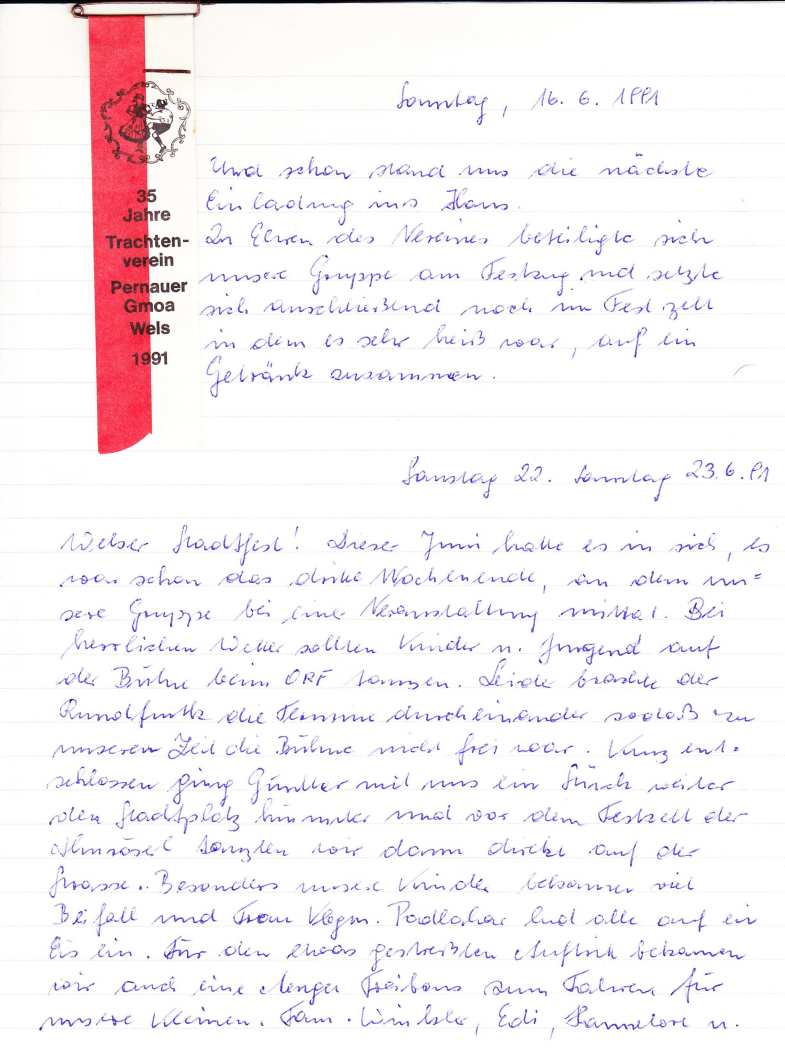 35
Jahre
Trachten-
verein
Pernauer
Gmoa
Wels
1991
Sonntag, 16. 6. 1991
Und schon stand uns die nächste
Einladung ins Haus.
Zu Ehren des Vereines beteiligte sich
unsere Gruppe am Festzug und setzte
sich anschließend noch im Festzelt
in dem es sehr heiß war, auf ein
Getränk zusammen.
Samstag 22. Sonntag 23.6.91
Welser Stadtfest! Dieser Juni hatte es in sich, es
war schon das dritte Wochenende, an dem un=
sere Gruppe bei einer Veranstaltung mittat. Bei
herrlichen Wetter sollten Kinder u. Jugend auf
der Bühne beim ORF tanzen. Leider brachte der
Rundfunk die Termine durcheinander sodaß zu
unserer Zeit die Bühne nicht frei war. Kurz ent=
schlossen ging Günther mit uns ein Stück weiter
den Stadtplatz hinunter und vor dem Festzelt der
tanzten wir dann direkt auf der
Strasse. Besonders unsere Kinder bekamen viel
Beifall und Frau lud alle auf ein
Eis ein. Für den etwas Auftritt bekamen
wir auch eine Menge Freibons zum Fahren für
unsere Kleinen. Fam. Edi, Hannelore u.